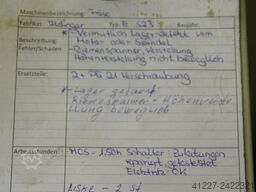 Maschinenbezeichnung: Fräse
Fabrikat: Typ: Baujahr:
Beschreibung: * - Vermutlich Lager defekt vom
Motor oder Spindel
Fehler/Schäden - Riemenspanner Verstellung
Höhenverstellung nicht beweglich
Ersatzteile: 2x PG 21 Verschraubung
* - Lager
Riemenspanner + Höhenverste
llung beweglich
Arbeitsstunden HCS - 1,50h Schalter, Zuleitungen
repariert, getestet
Elektrik: OK
- 2 St
41227-2422321